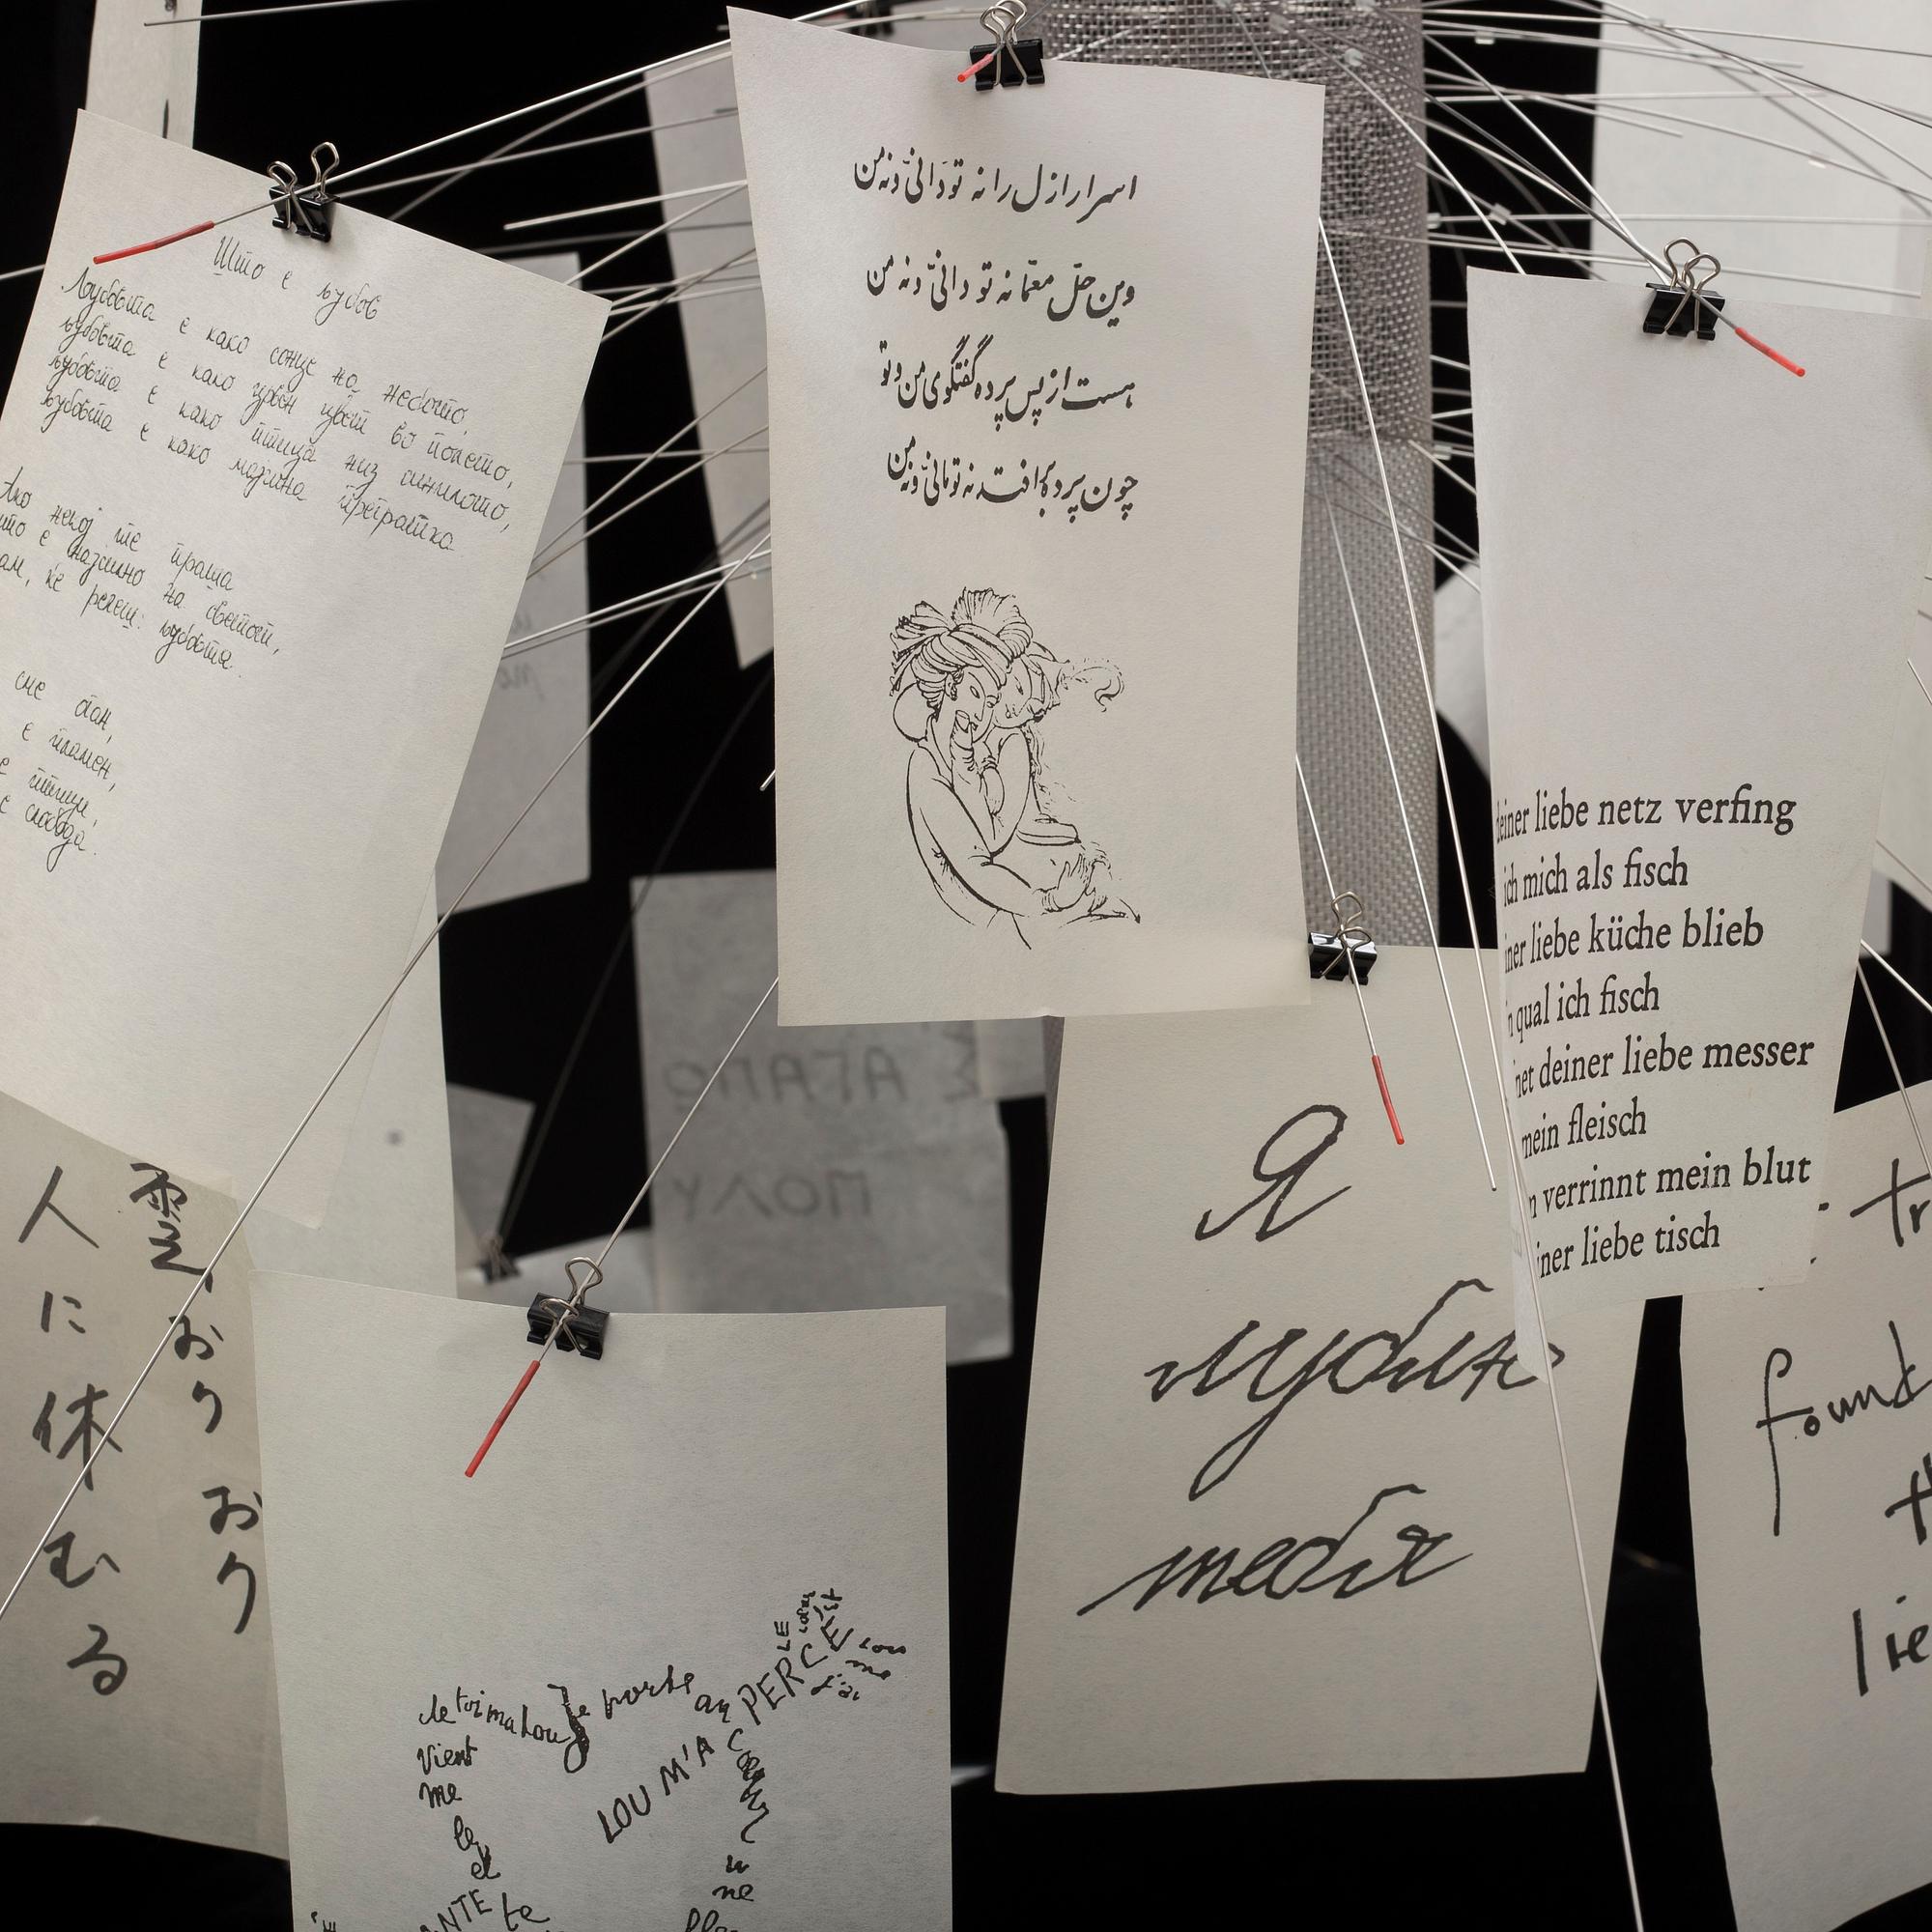 Што е љубов
Љубовта е како сонце на небото,
љубовта е како црвен цвет во полето,
љубовта е како птица низ синилото,
љубовта е како мајчина прегратка.
Ако некој те праша
што е најсилно на светот,
ќе речеш: љубовта.
сме
е пламен,
птици,
е слобода.
اسرار ازل را نه تو دانیّ و نه من
وین حلّ معمّا نه تو دانیّ و نه من
هست از پس پرده گفتگوی من و تو
چون پرده برافتد نه تو مانیّ و نه من
deiner liebe netz verfing
ich mich als fisch
liebe küche blieb
qual ich fisch
deiner liebe messer
mein fleisch
verrinnt mein blut
liebe tisch
Σ ΑΓΑΠΩ
ΠΟΛΥ
Я
люблю
тебя
tr
found
lie
おり おり
人に休むる
de toi ma Lou Je porte au
vient
me
LOU M'A PERCÉ
LE
coeur
J'ai
me
et
ANTE te
une